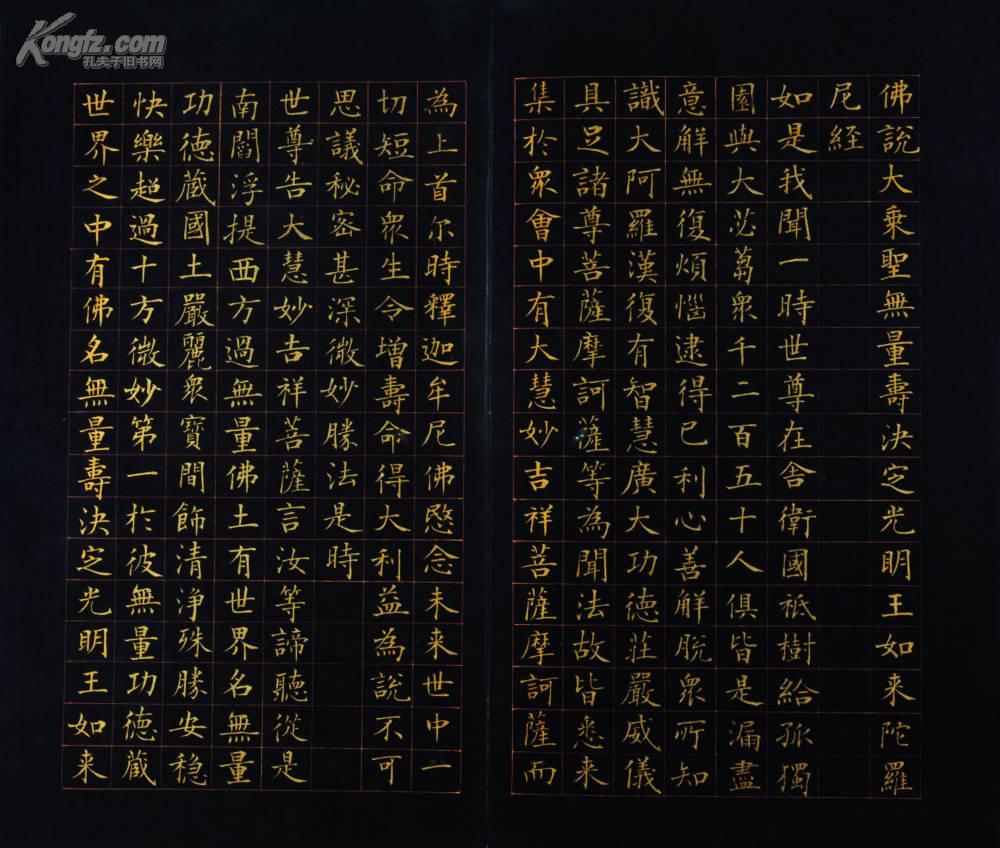 Kongfz.com
孔夫子旧书网
佛說大乘聖無量壽決定光明王如来陀羅
尼經
如是我聞一時世尊在舍衛國祇樹給孤獨
園與大苾蒭衆千二百五十人俱皆是漏盡
意解無復煩惱逮得已利心善解脫衆所知
識大阿羅漢復有智慧廣大功德莊嚴威儀
具足諸尊菩薩摩訶薩等為聞法故皆悉来
集於衆會中有大慧妙吉祥菩薩摩訶薩而
為上首尔時釋迦牟尼佛愍念未来世中一
切短命衆生令增壽命得大利益為說不可
思議秘密甚深微妙勝法是時
世尊告大慧妙吉祥菩薩言汝等諦聽從是
南閻浮提西方過無量佛土有世界名無量
功德藏國土嚴麗衆寶間飾清淨殊勝安穏
快樂超過十方微妙第一於彼無量功德藏
世界之中有佛名無量壽決定光明王如来